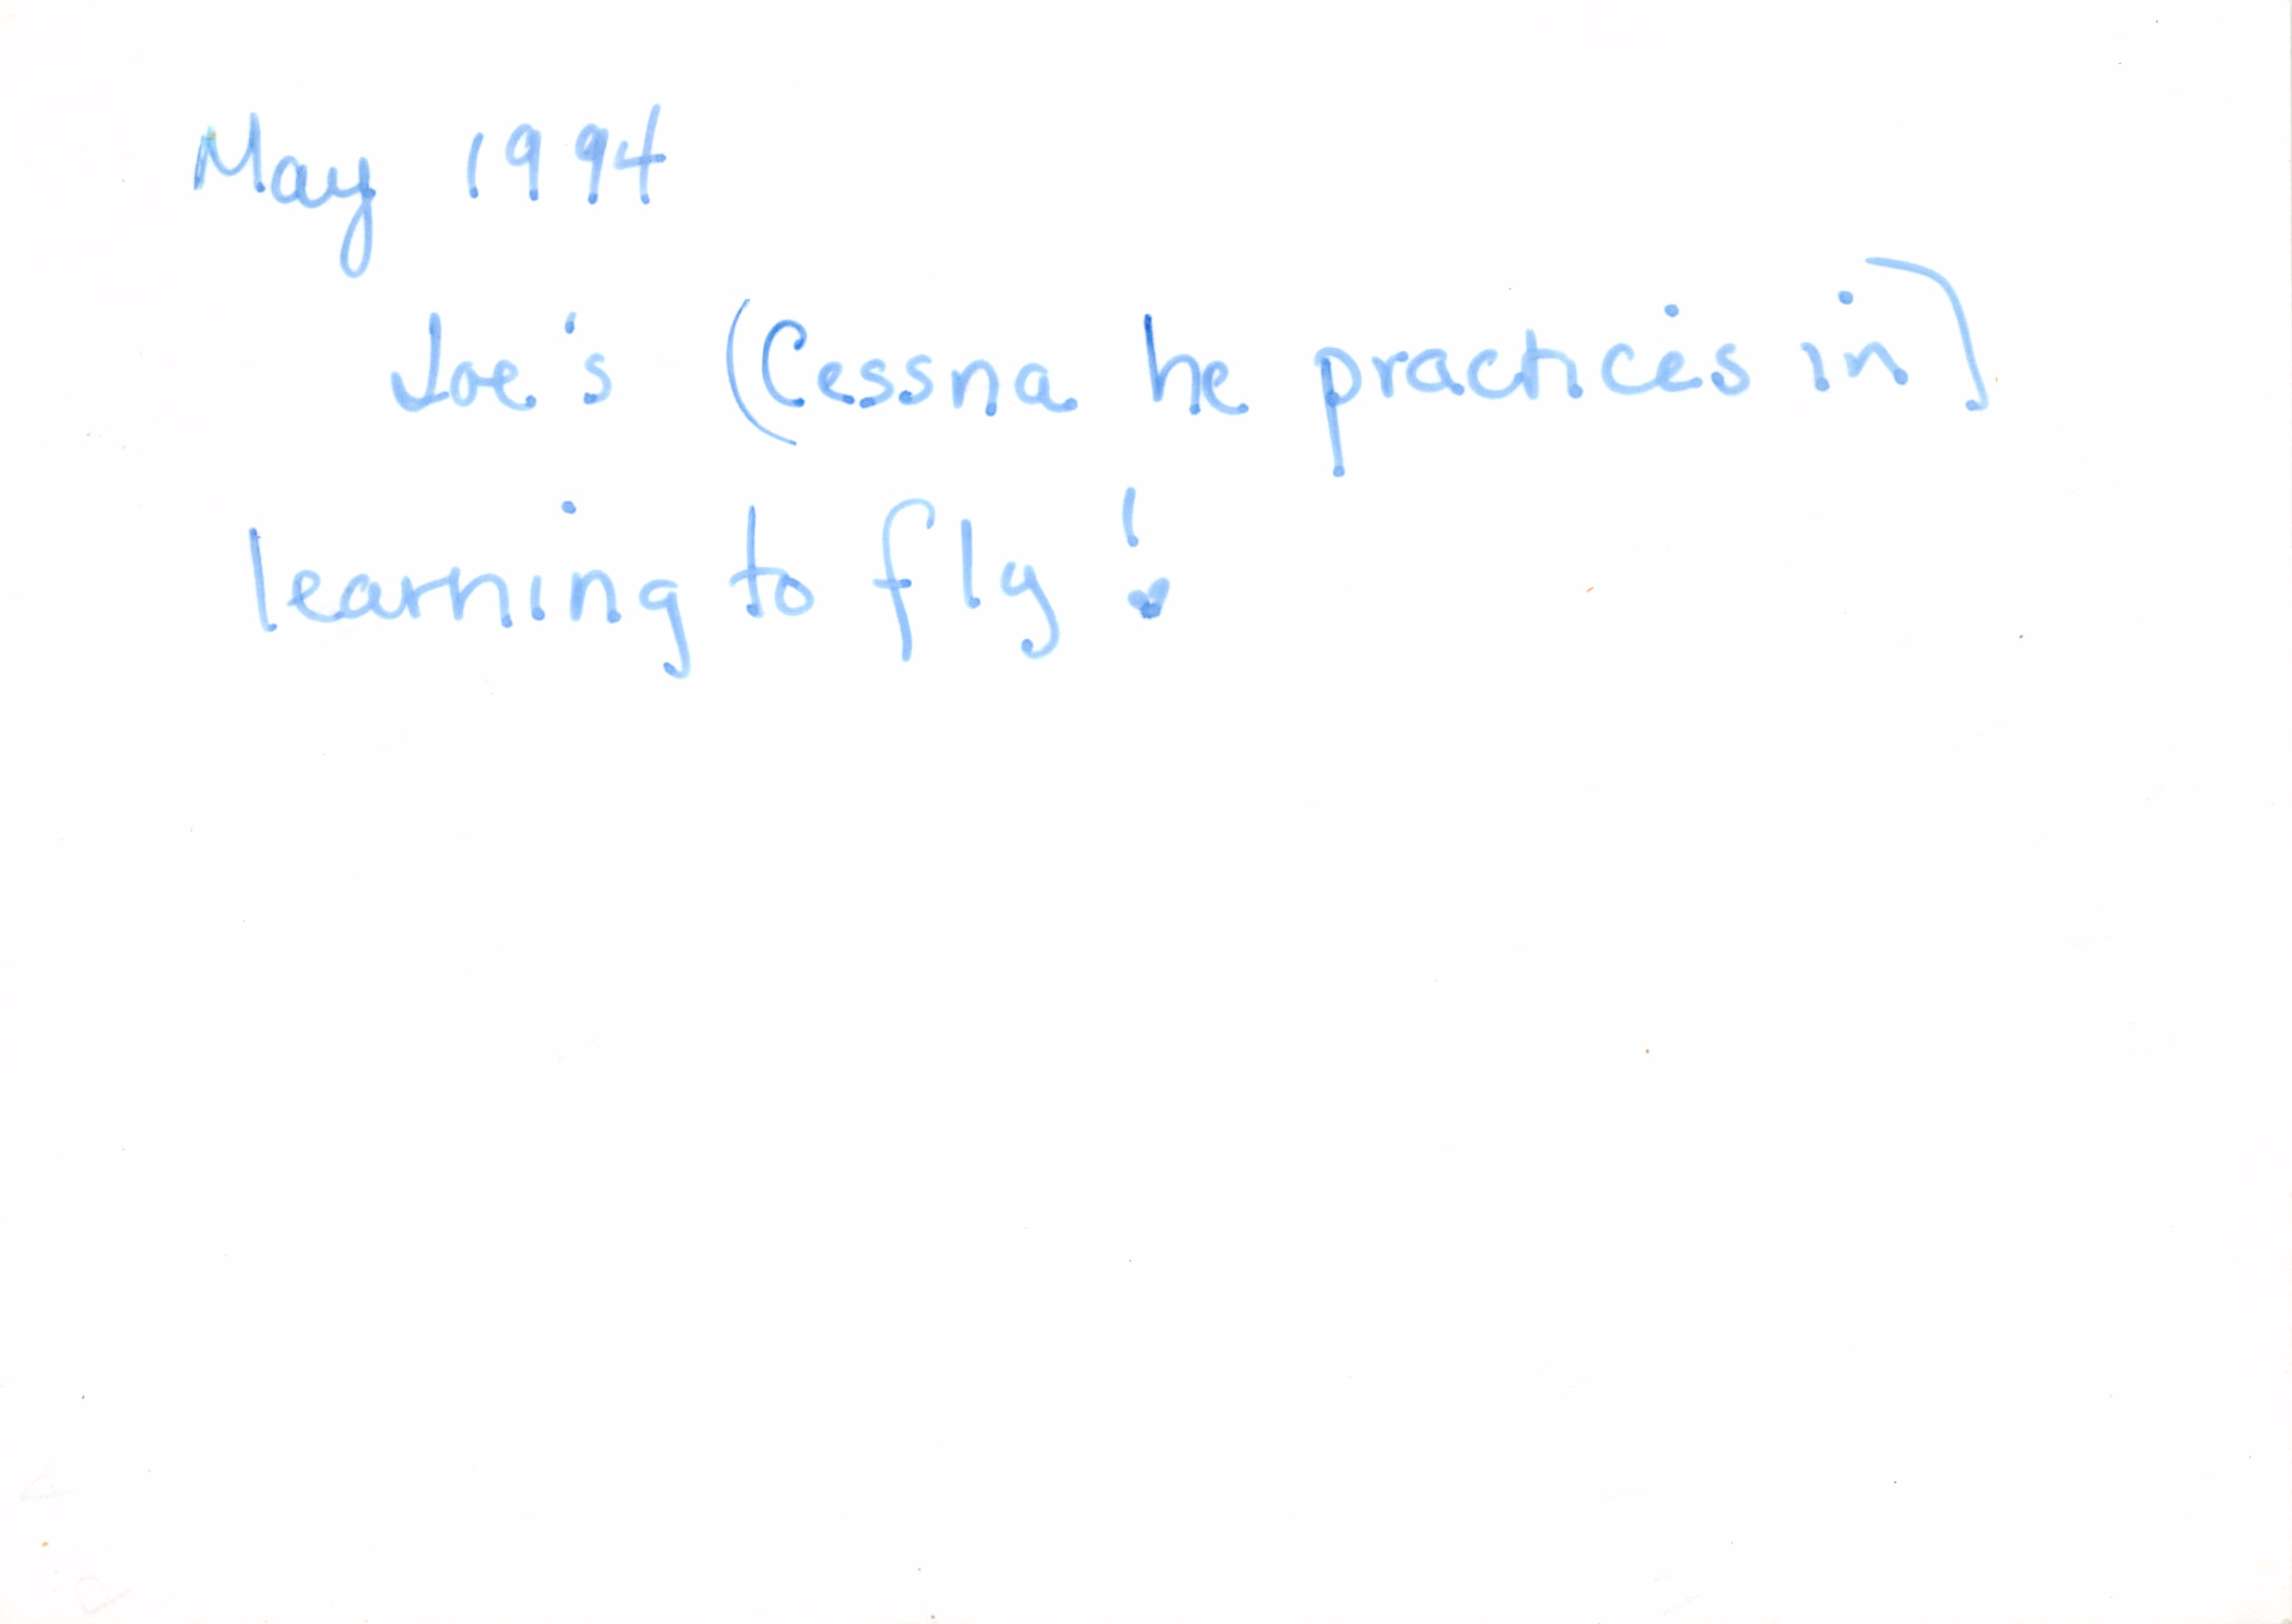 May 1994
Joe's (Cessna he practices in)
learning to fly!